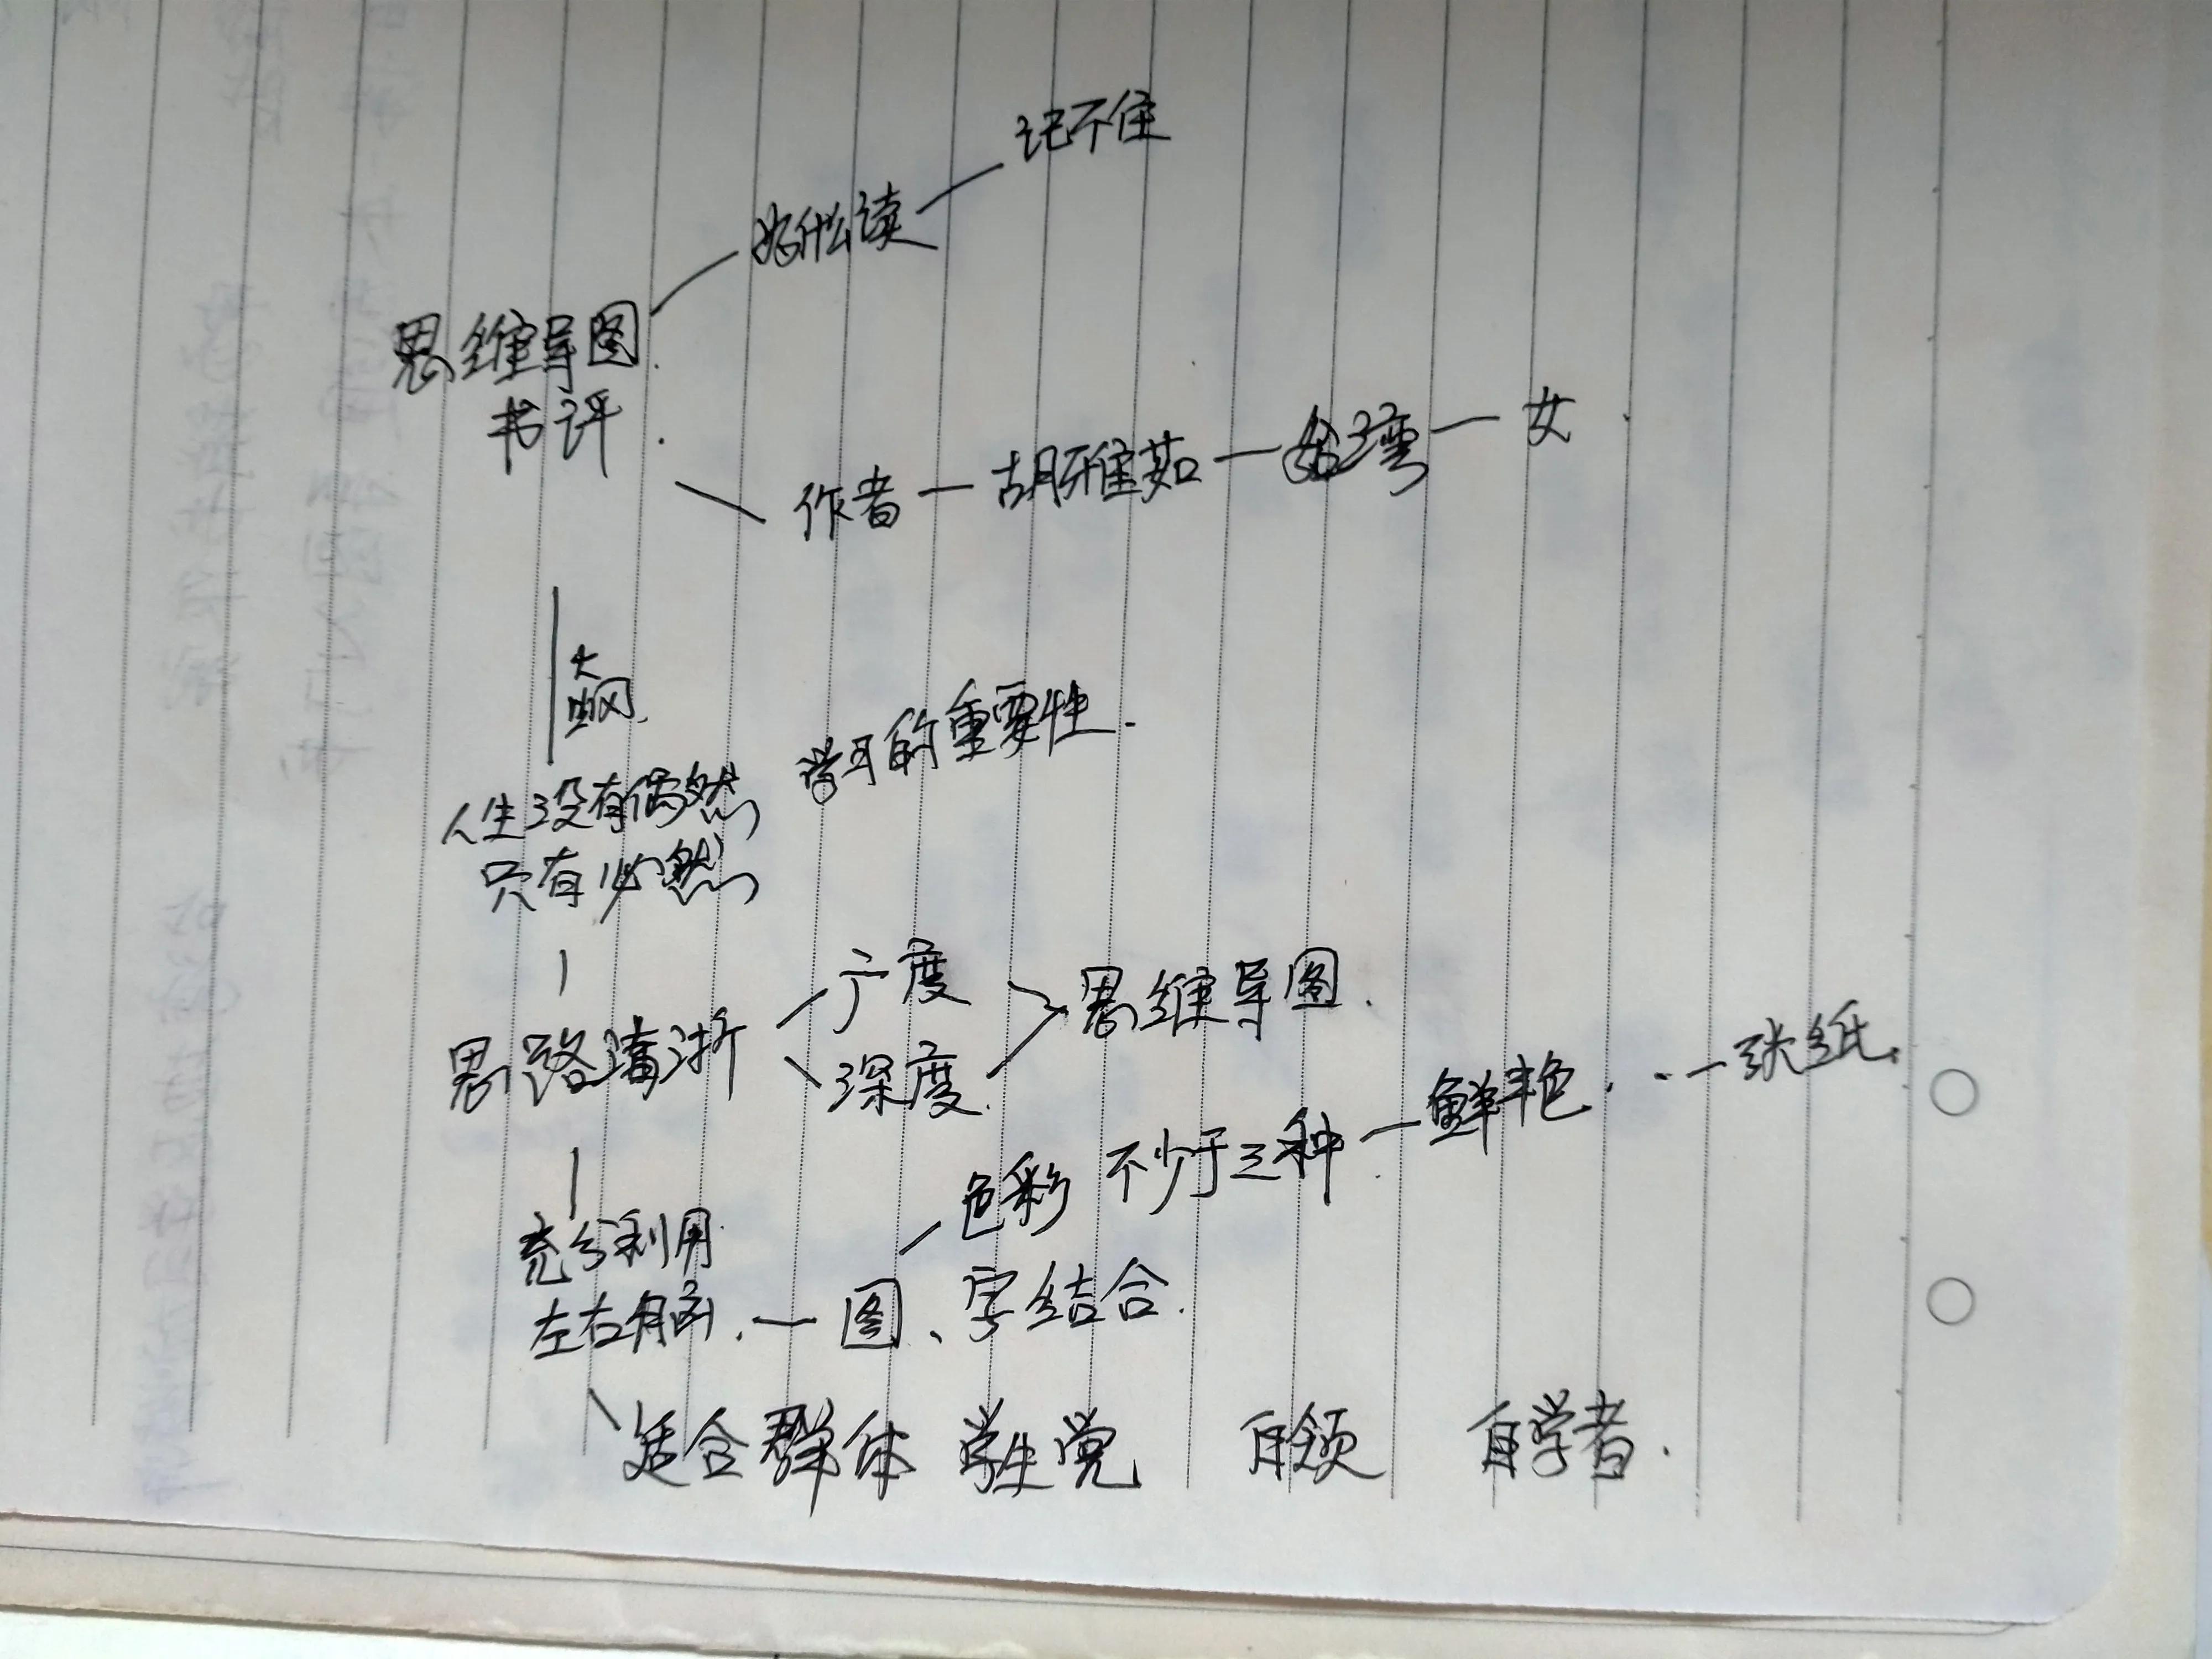 记不住
什么读
思维导图
书评
作者 胡雅茹 台湾 女
大纲
学习的重要性
人生没有偶然
只有必然
广度
思路清淅
深度
思维导图
色彩 不少于三种 鲜艳 一张纸
充分利用
左右脑 图、字结合
适合群体 学生党 白领 自学者